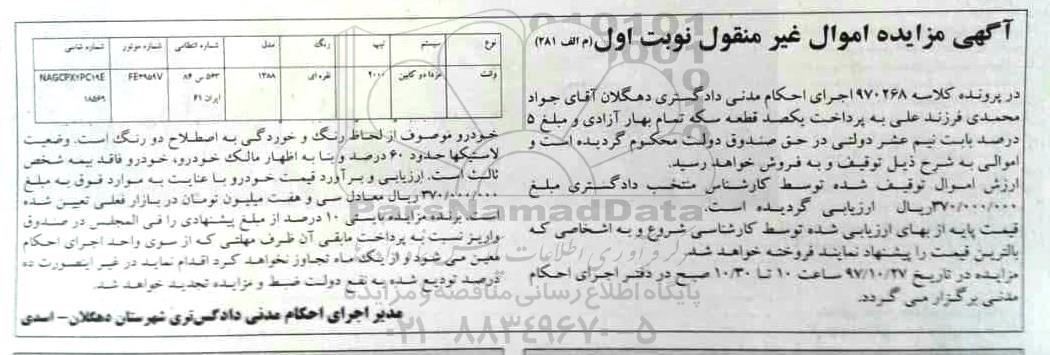 آگهی مزایده اموال غیر منقول نوبت اول (م الف ۲۸۱)
در پرونده کلاسه ۹۷۰۲۶۸ اجرای احکام مدنی دادگستری دهگلان آقای جواد
محمدی فرزند علی به پرداخت یکصد قطعه سکه تمام بهار آزادی و مبلغ ۵
درصد بابت نیم عشر دولتی در حق صندوق دولت محکوم گردیده است و
اموالی به شرح ذیل توقیف و به فروش خواهد رسید.
ارزش اموال توقیف شده توسط کارشناس منتخب دادگستری مبلغ
۳۷۰/۰۰۰/۰۰۰ریال ارزیابی گردیده است.
قیمت پایه از بهای ارزیابی شده توسط کارشناسی شروع و به اشخاصی که
بالاترین قیمت را پیشنهاد نمایند فروخته خواهد شد.
مزایده در تاریخ ۹۷/۱۰/۲۷ ساعت ۱۰ تا ۱۰/۳۰ صبح در دفتر اجرای احکام
مدنی برگزار می گردد.
نوع سیستم تیپ رنگ مدل شماره انتظامی شماره موتور شماره شاسی
وانت مزدا دو کابین ۲۰۰۰ نقره ای ۱۳۸۸ ۵۶۳ س ۸۶ FE۴۹۵۹۷ NAGCPX۲PC۱۹E
ایران ۶۱ ۱۸۵۶۹
خودرو موصوف از لحاظ رنگ و خوردگی به اصطلاح دو رنگ است. وضعیت
لاستیکها حدود ۶۰ درصد و بنا به اظهار مالک خودرو، خودرو فاقد بیمه شخص
ثالث است. ارزیابی و برآورد قیمت خودرو با عنایت به موارد فوق به مبلغ
۳۷۰/۰۰۰/۰۰۰ریال معادل سی و هفت میلیون تومان در بازار فعلی تعیین شده
است برنده مزایده ۱۰ درصد از مبلغ پیشنهادی را فی المجلس در صندوق
واریز نسبت به پرداخت مابقی آن ظرف مهلتی که از سوی واحد اجرای احکام
معین می شود و از یک ماه تجاوز نخواهد کرد اقدام نماید در غیر اینصورت ده
درصد تودیع شده به نفع دولت ضبط و مزایده تجدید خواهد شد.
مدیر اجرای احکام مدنی دادگستری شهرستان دهگلان - اسدی
پایگاه اطلاع رسانی مناقصه و مزایده
۰۲۱-۸۸۳۴۹۶۷۰-۵